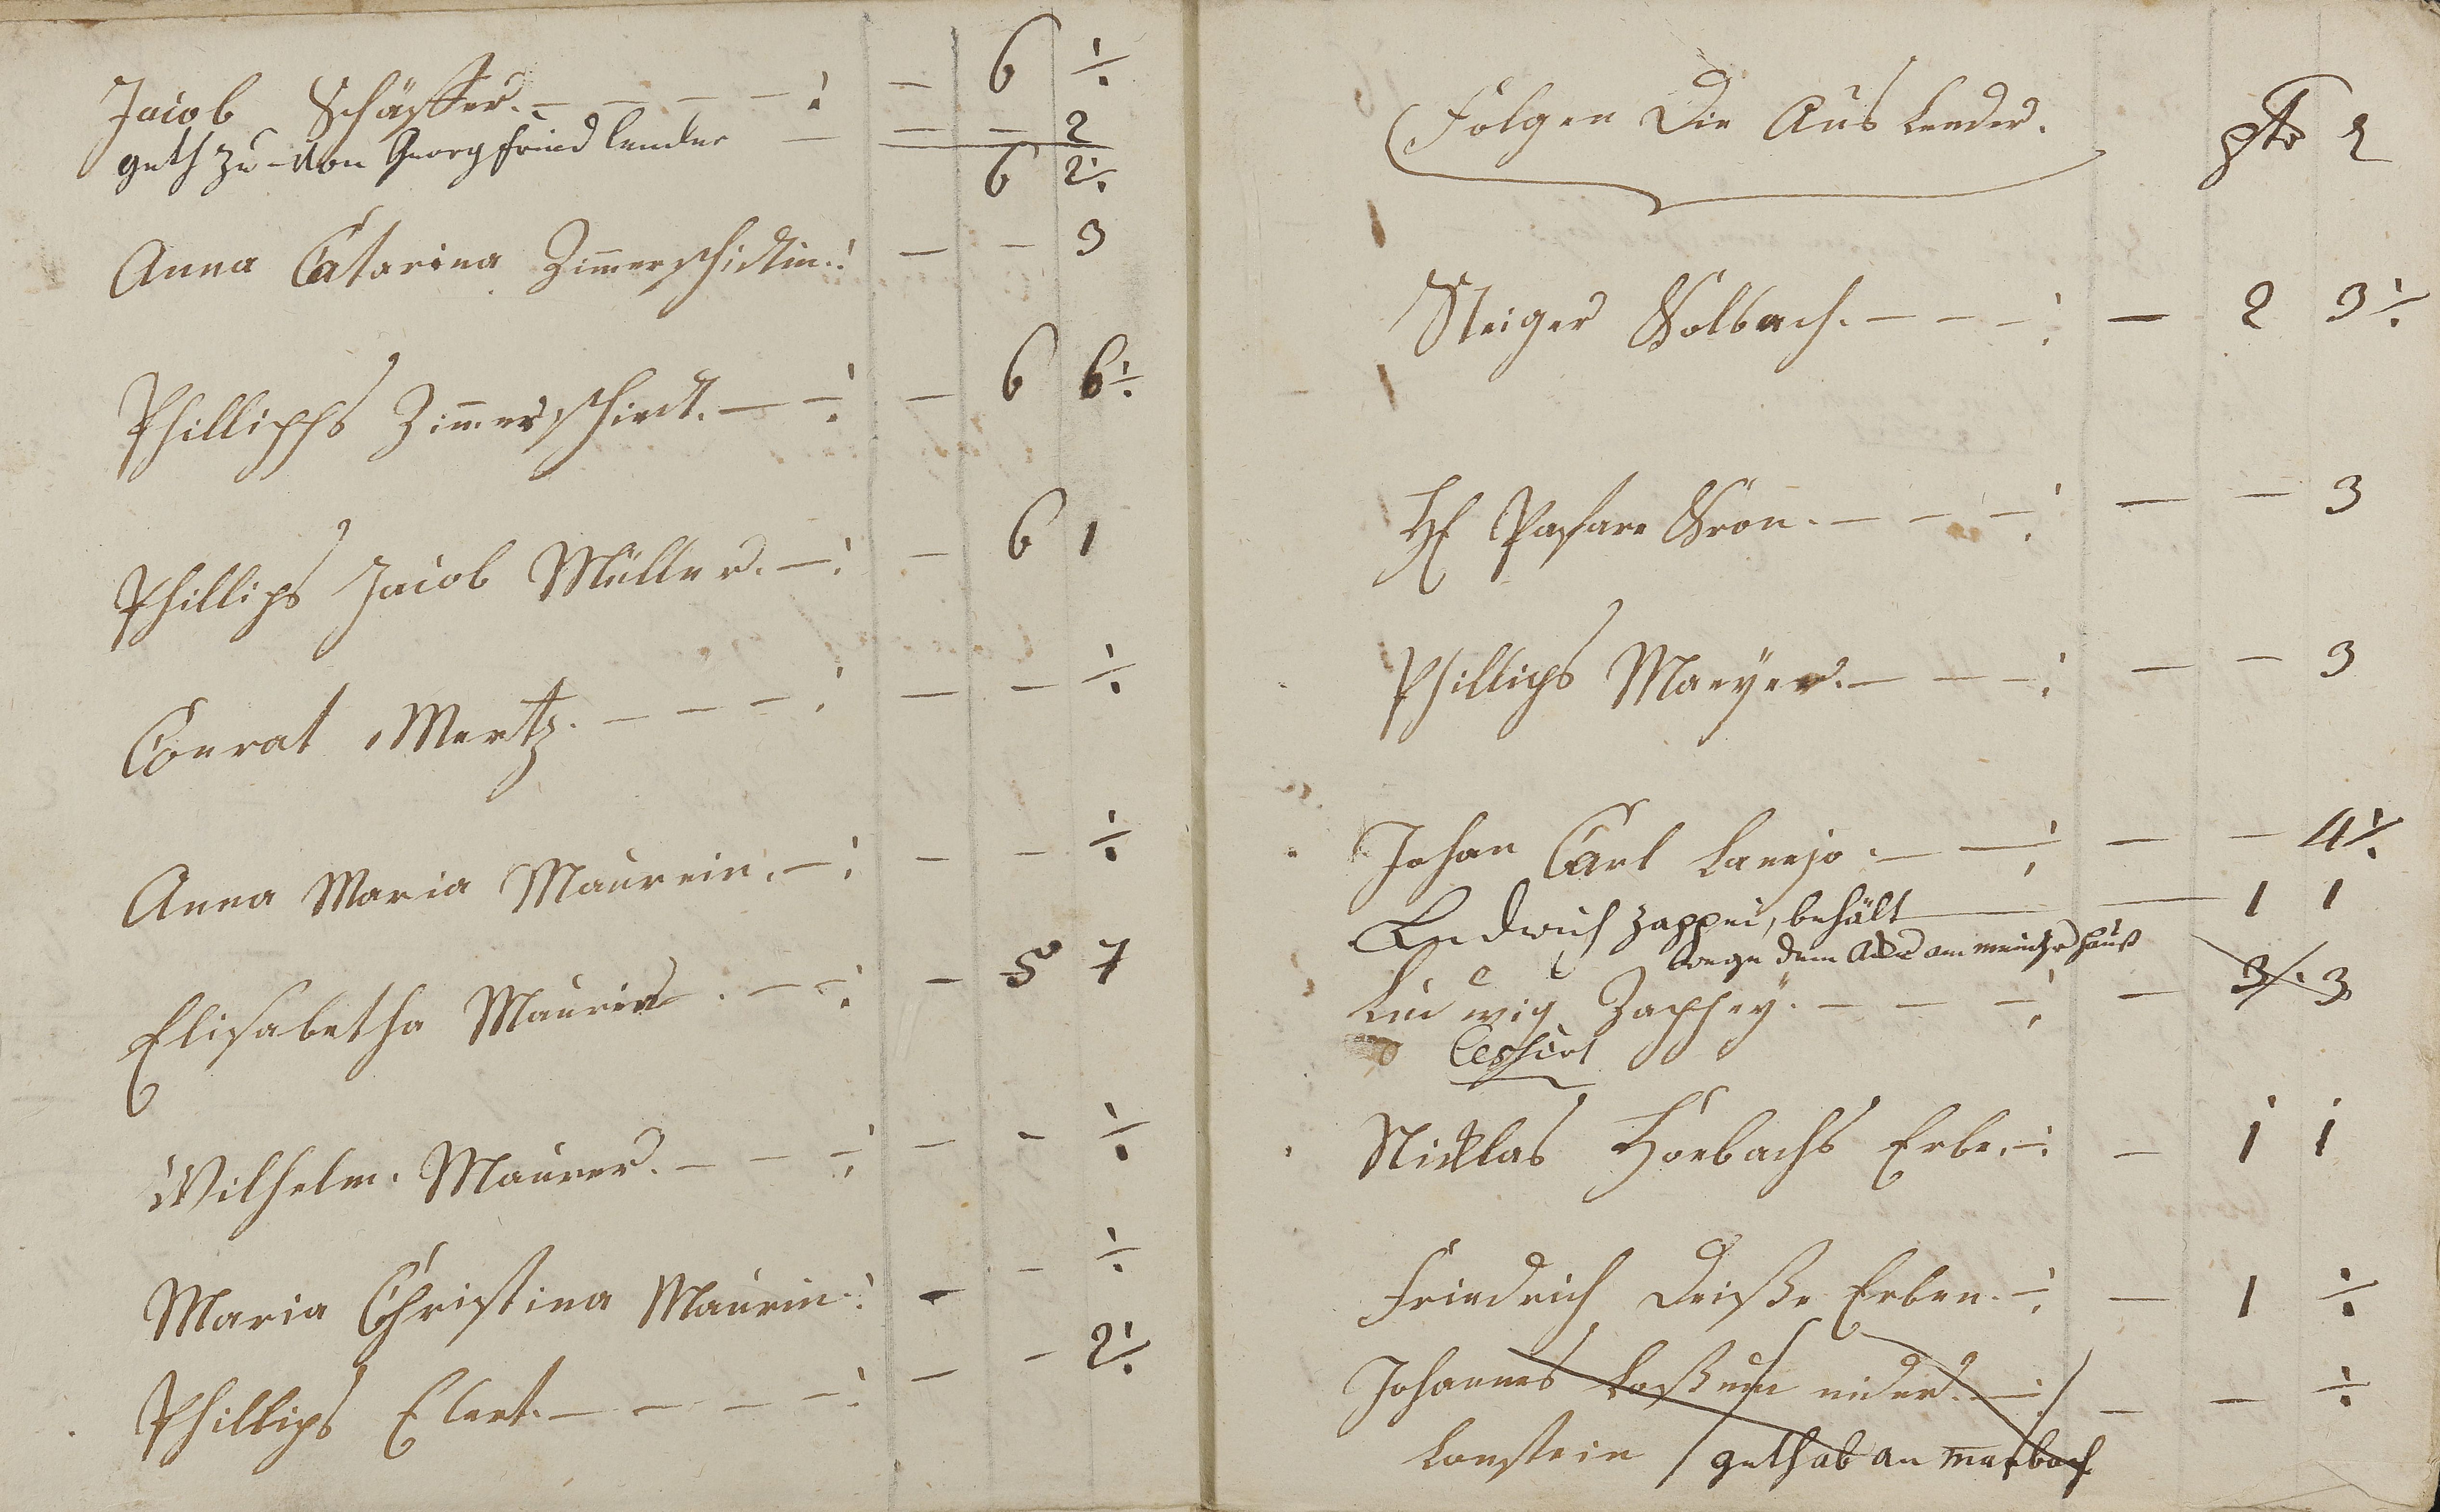 Jacob Schäffer. – – – – : – 6 ./.
geth zu – von Georg fried lender – – – 2
6 2./.
Anna Catarina Zimerschidtin : – – 3
Phillipps Zimerschiedt. – – : – 6 6./.
Phillips Jacob Müller. – : – 6 1
Conrat Mertz. – – – : – – ./.
Anna Maria Maurein. – : – – ./.
Elisabetha Maurin. – – : – 5 7
Wilhelm. Maurer. – – : – – ./.
Maria Christina Maurin : – – ./.
Phillips Elert. – – – – : – – 2./.
Folgen Die Aus Lender.
Steiger Volbach. – – – : – 2 3./.
H Pafare – – – : – – 3
Phillips Maeyer. – – – : – – 3
Johan Carl Lanjo. – – : – – 4./.
Ludwich Zappei, behält – – 1 1
wege dem am hauß
Ludwig Zaphey. – – – : – 3./. 3
Cessirt
Nicklas Horbachs Erbe. – : – 1 1
Friedrich Deiße Erben. – : – 1 ./.
Johannes nider – : / – – ./.
Lonstein / geth ab an Marbach